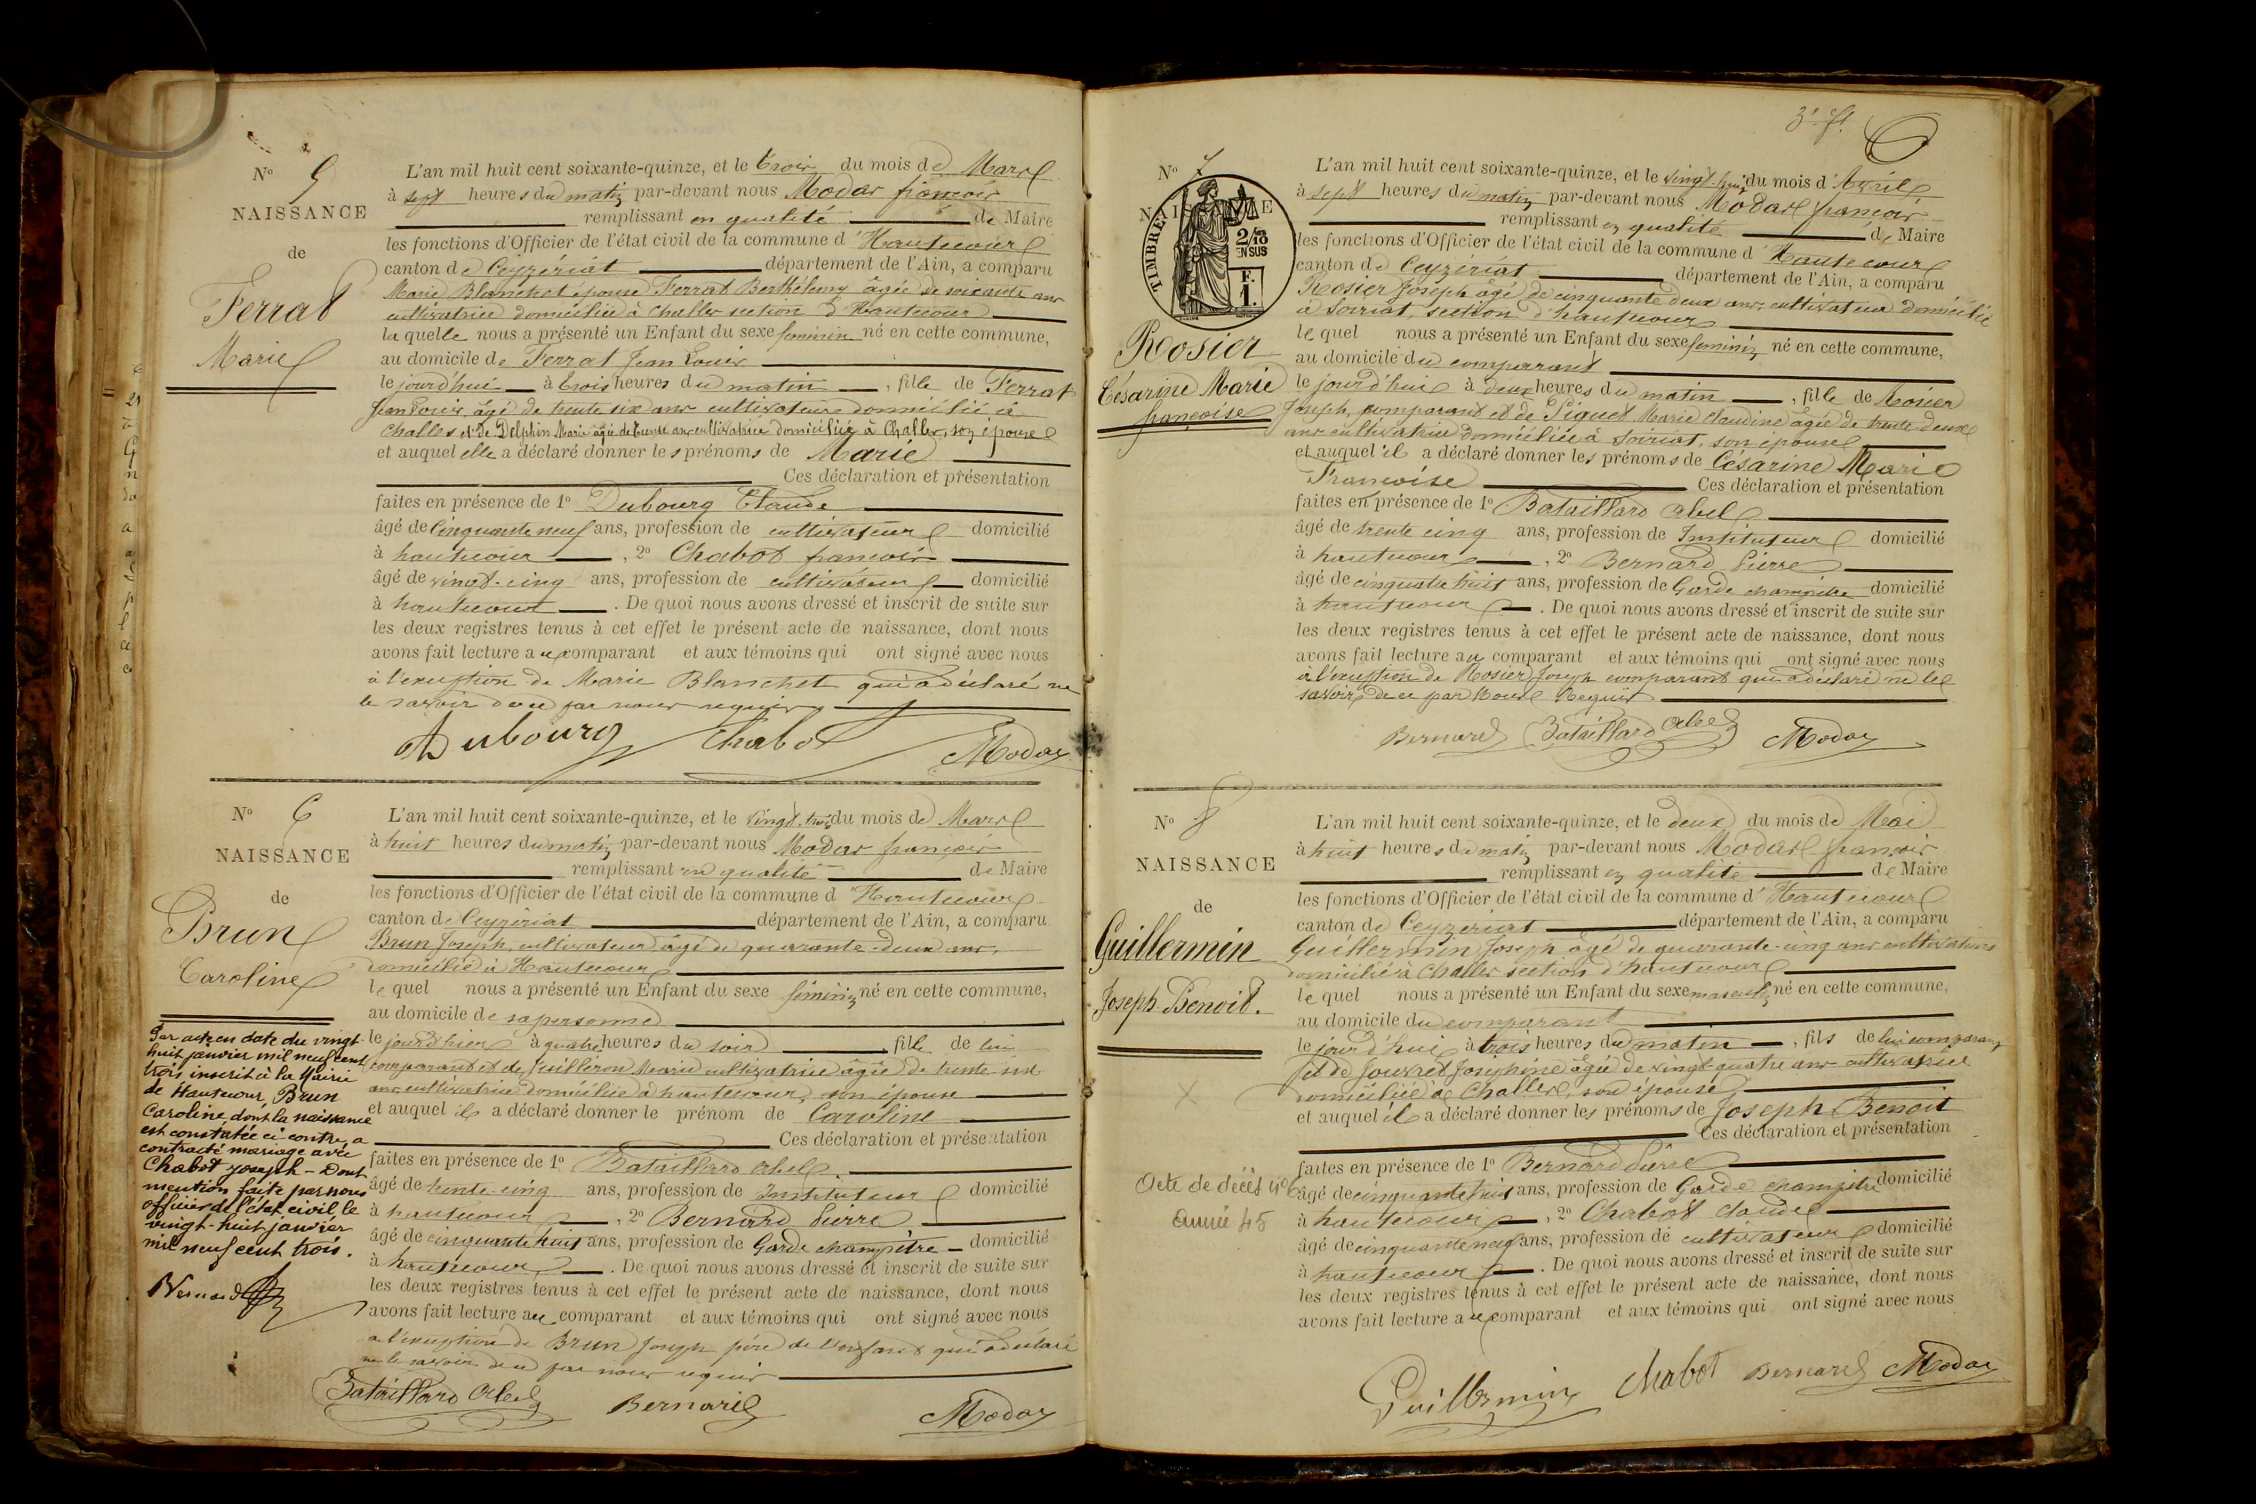 No 5
NAISSANCE
de
Ferrat
Marie
L'an mil huit cent soixante-quinze, et le trois du mois de Mars
à sept heures du matin par-devant nous Modas françois
remplissant en qualité de Maire
les fonctions d'Officier de l'état civil de la commune d'Hautecour
canton de Ceyzériat département de l'Ain, a comparu
Marie Blanchet épouse Ferrat Berthélemy âgée de soixante ans
cultivatrice domiciliée à Challes section d'Hautecour
la quelle nous a présenté un Enfant du sexe féminin né en cette commune,
au domicile de Ferrat Jean Louis
le jourd'hui à trois heures du matin, fille de Ferrat
Jean Louis, âgé de trente six ans cultivateur domicilié à
Challes et de Delphin Marie âgée de trente ans cultivatrice domiciliée à Challes, son épouse
et auquel elle a déclaré donner les prénoms de Marie
Ces déclaration et présentation
faites en présence de 1o Dubourg Claude
âgé de Cinquante neuf ans, profession de cultivateur domicilié
à hautecour, 2o Chabot françois
âgé de vingt-cinq ans, profession de cultivateur domicilié
à hautecour. De quoi nous avons dressé et inscrit de suite sur
les deux registres tenus à cet effet le présent acte de naissance, dont nous
avons fait lecture au comparant et aux témoins qui ont signé avec nous
à l'exception de Marie Blanchet qui a déclaré ne
le savoir de ce par nous requis
Dubourg Chabot Modas
No 6
NAISSANCE
de
Brun
Caroline
Par acte en date du vingt
huit janvier mil neuf cent
trois, inscrit à la Mairie
de Hautecour, Brun
Caroline, dont la naissance
est constatée ci-contre, a
contracté mariage avec
Chabot Joseph - Dont
mention faite par nous
officier de l'état civil, le
vingt-huit janvier
mil neuf cent trois.
Bernard
L'an mil huit cent soixante-quinze, et le vingt-trois du mois de Mars
à huit heures du matin par-devant nous Modas françois
remplissant en qualité de Maire
les fonctions d'Officier de l'état civil de la commune d'Hautecour
canton de Ceyzériat département de l'Ain, a comparu
Brun Joseph, cultivateur âgé de quarante-deux ans,
domicilié à Hautecour
le quel nous a présenté un Enfant du sexe féminin né en cette commune,
au domicile de sa personne
le jourd'hier à quatre heures du soir, fille de lui
comparant et de Guilleron Marie cultivatrice âgée de trente six
ans cultivatrice domiciliée à hautecour, son épouse
et auquel il a déclaré donner le prénom de Caroline
Ces déclaration et présentation
faites en présence de 1o Bataillard Abel
âgé de trente-cinq ans, profession de Instituteur domicilié
à hautecour, 2o Bernard Pierre
âgé de cinquante huit ans, profession de Garde champêtre domicilié
à hautecour. De quoi nous avons dressé et inscrit de suite sur
les deux registres tenus à cet effet le présent acte de naissance, dont nous
avons fait lecture au comparant et aux témoins qui ont signé avec nous
à l'exception de Brun Joseph père de l'enfant qui a déclaré
ne le savoir de ce par nous requis
Bataillard Abel Bernard Modas
3e ft
No 7
NAISSANCE
TIMBRE
2/10
EN SUS
F.
1.
Rosier
Césarine Marie
françoise
L'an mil huit cent soixante-quinze, et le vingt-huit du mois d'Avril
à sept heures du matin par-devant nous Modas françois
remplissant en qualité de Maire
les fonctions d'Officier de l'état civil de la commune d'Hautecour
canton de Ceyzériat département de l'Ain, a comparu
Rosier Joseph âgé de cinquante deux ans, cultivateur domicilié
à Soiriat, section d'hautecour
le quel nous a présenté un Enfant du sexe féminin né en cette commune,
au domicile du comparant
le jourd'hui à deux heures du matin, fille de Rosier
Joseph, comparant et de Piquet Marie Claudine âgée de trente deux
ans cultivatrice domiciliée à Soiriat, son épouse
et auquel il a déclaré donner les prénoms de Césarine Marie
Françoise Ces déclaration et présentation
faites en présence de 1o Bataillard Abel
âgé de trente cinq ans, profession de Instituteur domicilié
à hautecour, 2o Bernard Pierre
âgé de cinquante huit ans, profession de Garde champêtre domicilié
à hautecour. De quoi nous avons dressé et inscrit de suite sur
les deux registres tenus à cet effet le présent acte de naissance, dont nous
avons fait lecture au comparant et aux témoins qui ont signé avec nous
à l'exception de Rosier Joseph comparant qui a déclaré ne le
savoir de ce par Nous Requis
Bernard Bataillard Abel Modas
No 8
NAISSANCE
de
Guillermin
Joseph-Benoit.
X
Acte de décès no 6
année 45
L'an mil huit cent soixante-quinze, et le deux du mois de Mai
à huit heures du matin par-devant nous Modas françois
remplissant en qualité de Maire
les fonctions d'Officier de l'état civil de la commune d'Hautecour
canton de Ceyzériat département de l'Ain, a comparu
Guillermin Joseph âgé de quarante-cinq ans cultivateur
domicilié à Challes section d'hautecour
le quel nous a présenté un Enfant du sexe masculin né en cette commune,
au domicile du comparant
le jourd'hui à trois heures du matin, fils de lui comparant
et de Jouvret Joséphine âgée de vingt-quatre ans cultivatrice
domiciliée à Challes, son épouse
et auquel il a déclaré donner les prénoms de Joseph Benoit
Ces déclaration et présentation
faites en présence de 1o Bernard Pierre
âgé de cinquante huit ans, profession de Garde champêtre domicilié
à hautecour, 2o Chabot Claude
âgé de cinquante neuf ans, profession de cultivateur domicilié
à hautecour. De quoi nous avons dressé et inscrit de suite sur
les deux registres tenus à cet effet le présent acte de naissance, dont nous
avons fait lecture au comparant et aux témoins qui ont signé avec nous
Guillermin Chabot Bernard Modas